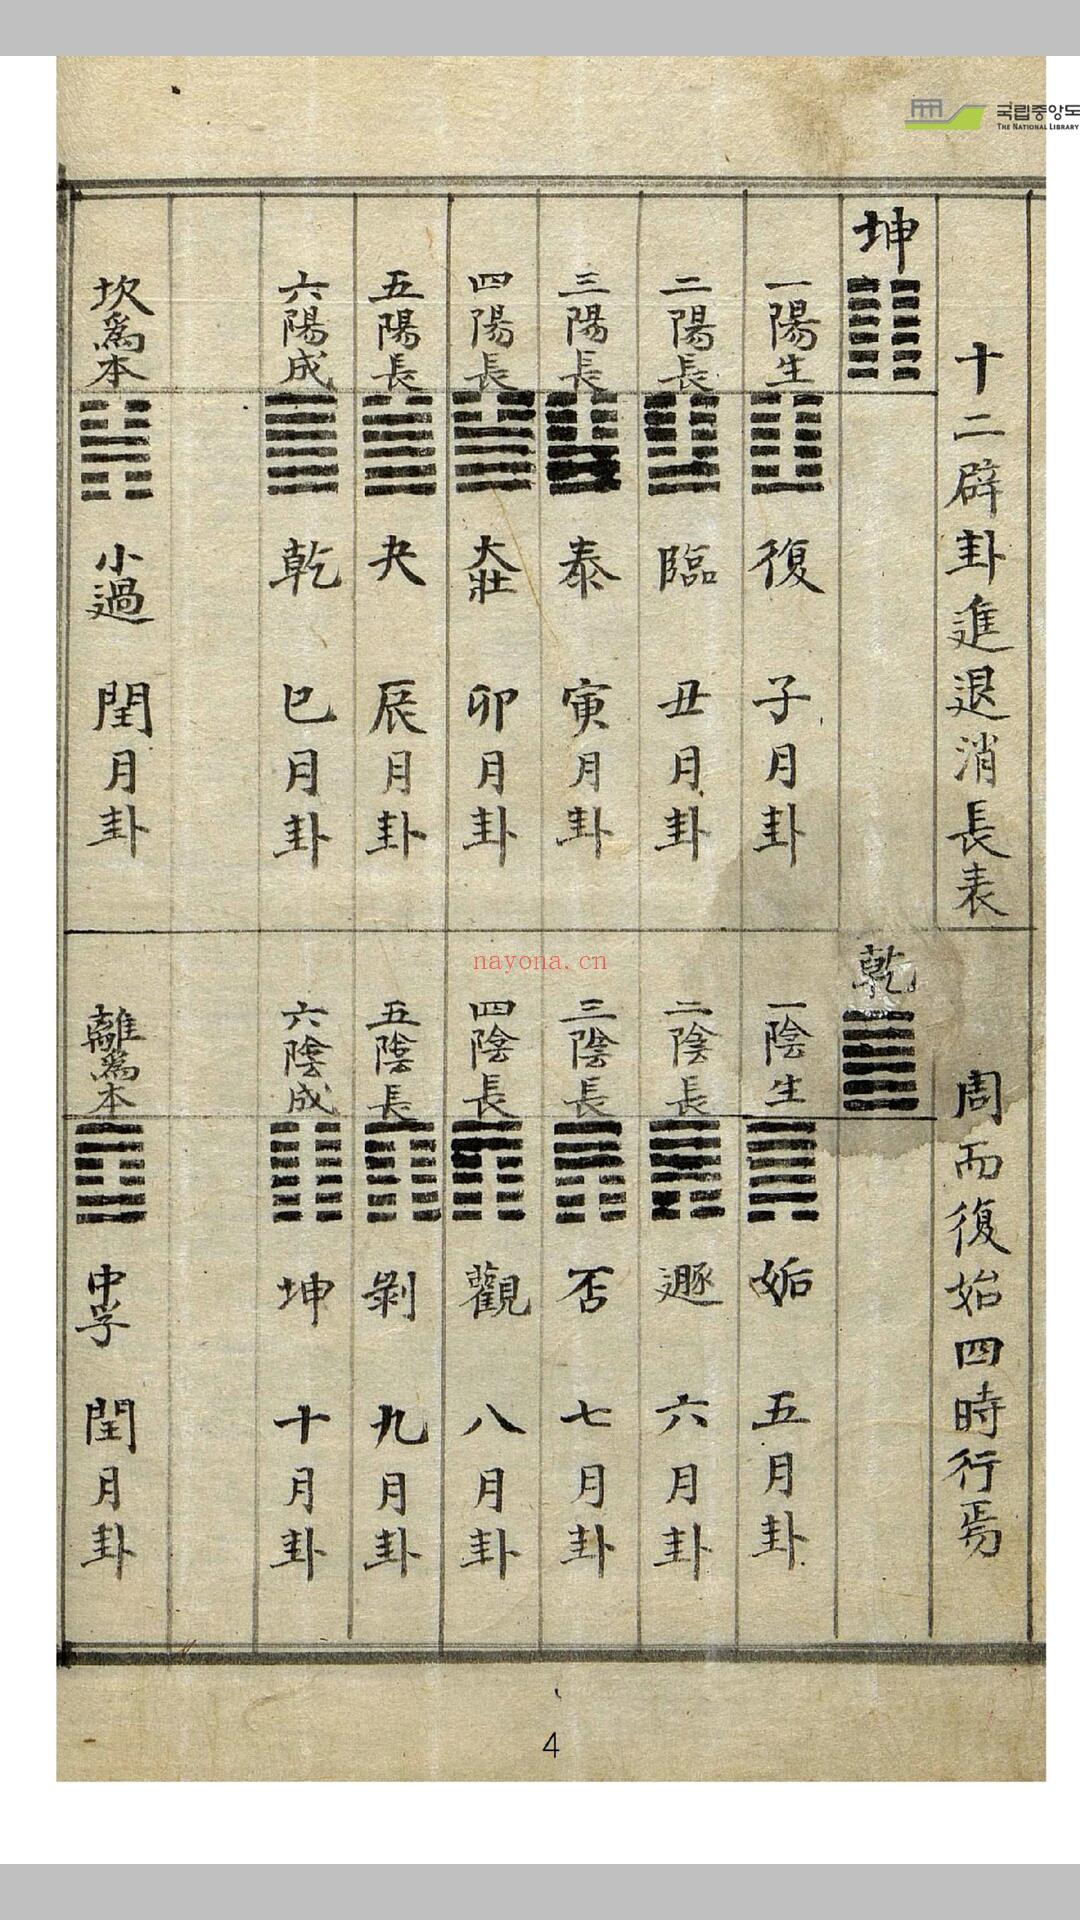 국립중앙도
THE NATIONAL LIBRARY
十二辟卦進退消長表
周而復始四時行焉
坤
一陽生 復 子月卦
二陽長 臨 丑月卦
三陽長 泰 寅月卦
四陽長 大壯 卯月卦
五陽長 夬 辰月卦
六陽成 乾 巳月卦
坎爲本 小過 閏月卦
乾
一陰生 姤 五月卦
二陰長 遯 六月卦
三陰長 否 七月卦
四陰長 觀 八月卦
五陰長 剝 九月卦
六陰成 坤 十月卦
離爲本 中孚 閏月卦
nayona.cn
4